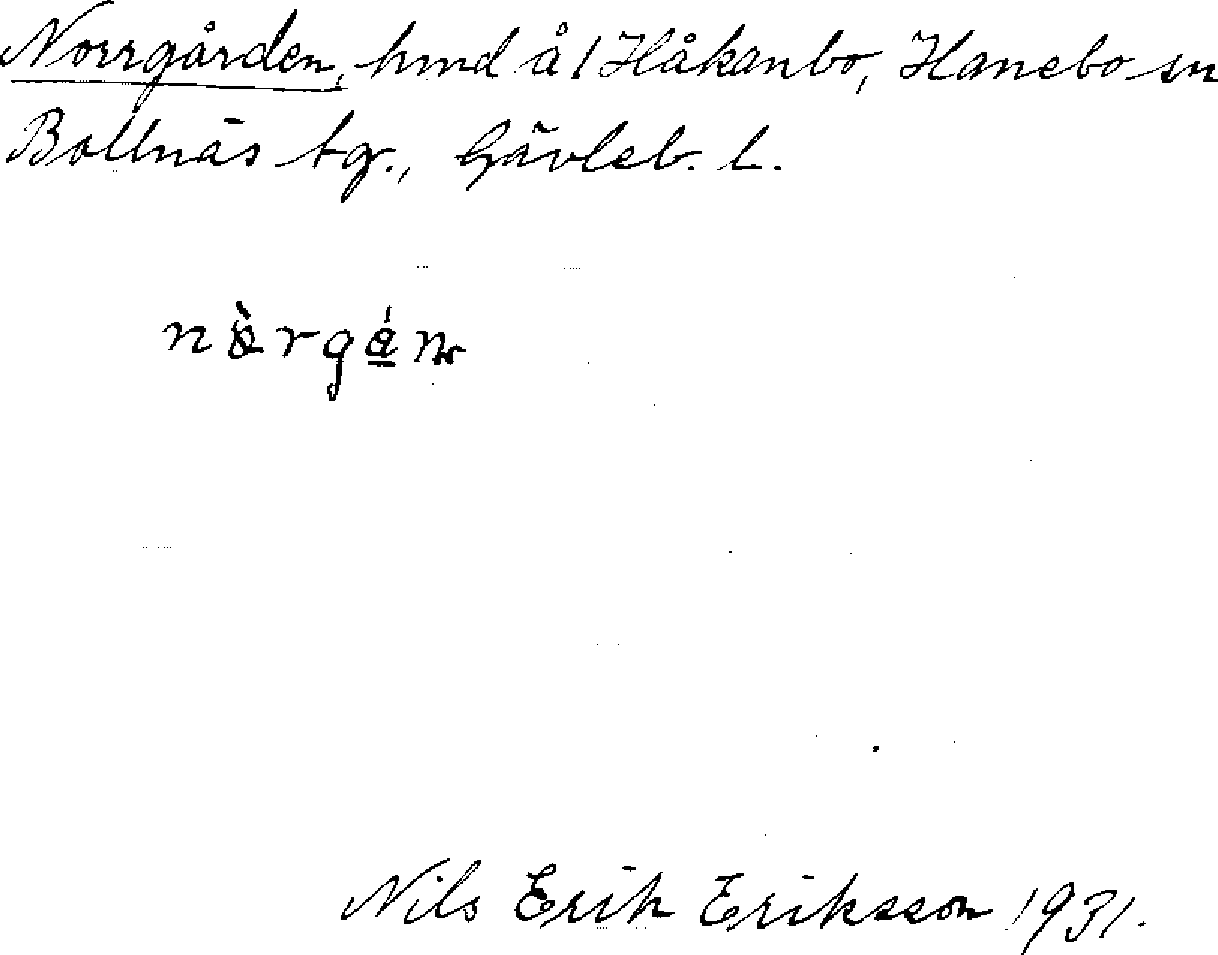 Norrgården, hmd å 1 Håkanbo, Hanebo sn
Bollnäs tg., Gävleb. l.
Nils Erik Eriksson 1931.